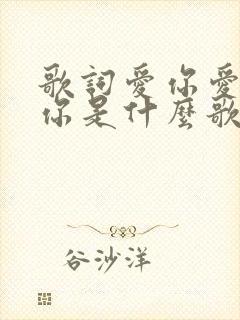 歌詞愛你愛
你是什麼歌
谷沙洋